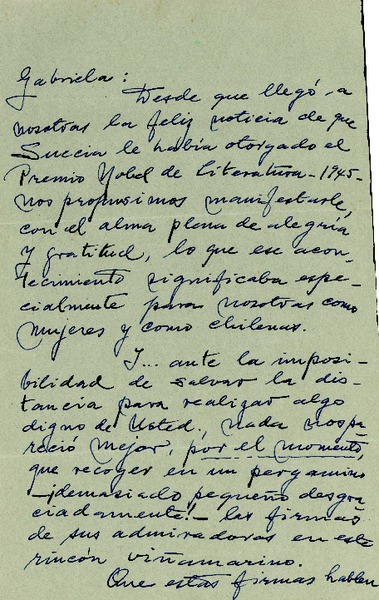 Gabriela:
Desde que llegó a
nosotras la feliz noticia de que
Suecia le había otorgado el
Premio Nobel de Literatura -1945-
nos propusimos manifestarle,
con el alma plena de alegría
y gratitud, lo que ese acon-
tecimiento significaba espe-
cialmente para nosotras como
mujeres y como chilenas.
Y... ante la imposi-
bilidad de salvar la dis-
tancia para realizar algo
digno de Usted, nada nos pa
reció mejor, por el momento,
que recoger en un pergamino
-¡demasiado pequeño desgra
ciadamente!- las firmas
de sus admiradoras en este
rincón viñamarino.
Que estas firmas hablen